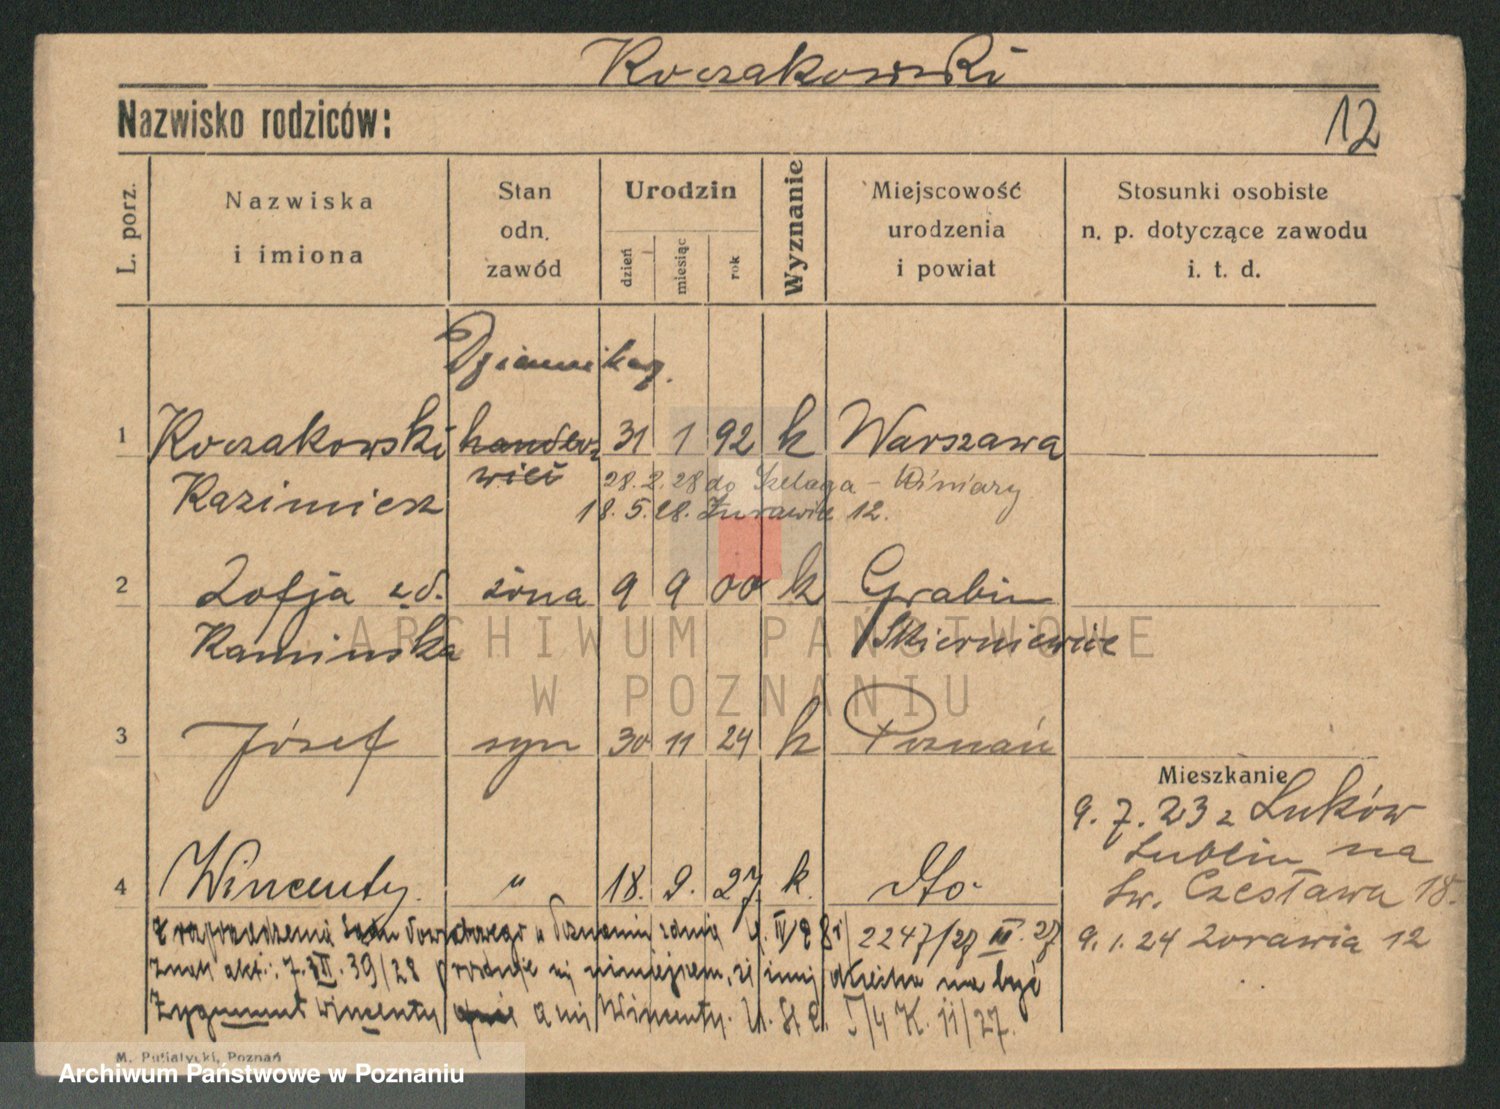 Koczakowski
Nazwisko rodziców:
12
L. porz.
Nazwiska
i imiona
Stan
odn.
zawód
Urodzin
dzień
miesiąc
rok
Wyznanie
Miejscowość
urodzenia
i powiat
Stosunki osobiste
n. p. dotyczące zawodu
i. t. d.
Dziennikarz.
1 Koczakowski handlarz 31 1 92 k Warszawa
Kazimierz
28.2.28 do Szeląga - Winiary
18.5.28. Żurawia 12.
2 Zofja zd. żona 9 9 00 k Grabin
Kamińska Skierniewice
ARCHIWUM PAŃSTWOWE
W POZNANIU
3 Józef syn 30 11 24 k Poznań
Mieszkanie
9. 7. 23 z Łuków
Lublin na
Św. Czesława 18.
9. 1. 24 Żorawia 12
4 Wincenty. " 18. 9. 27. k. dto.
Z rozporządzenia Sądu Powiatowego w Poznaniu z dnia IV 28 r 2247/27 27
Znak akt.: 7. 39/28 niniejszem, iż imię dziecka ma być
Zygmunt Wincenty a nie Wincenty. U. St. C. 11/27.
M. Putiatycki, Poznań
Archiwum Państwowe w Poznaniu